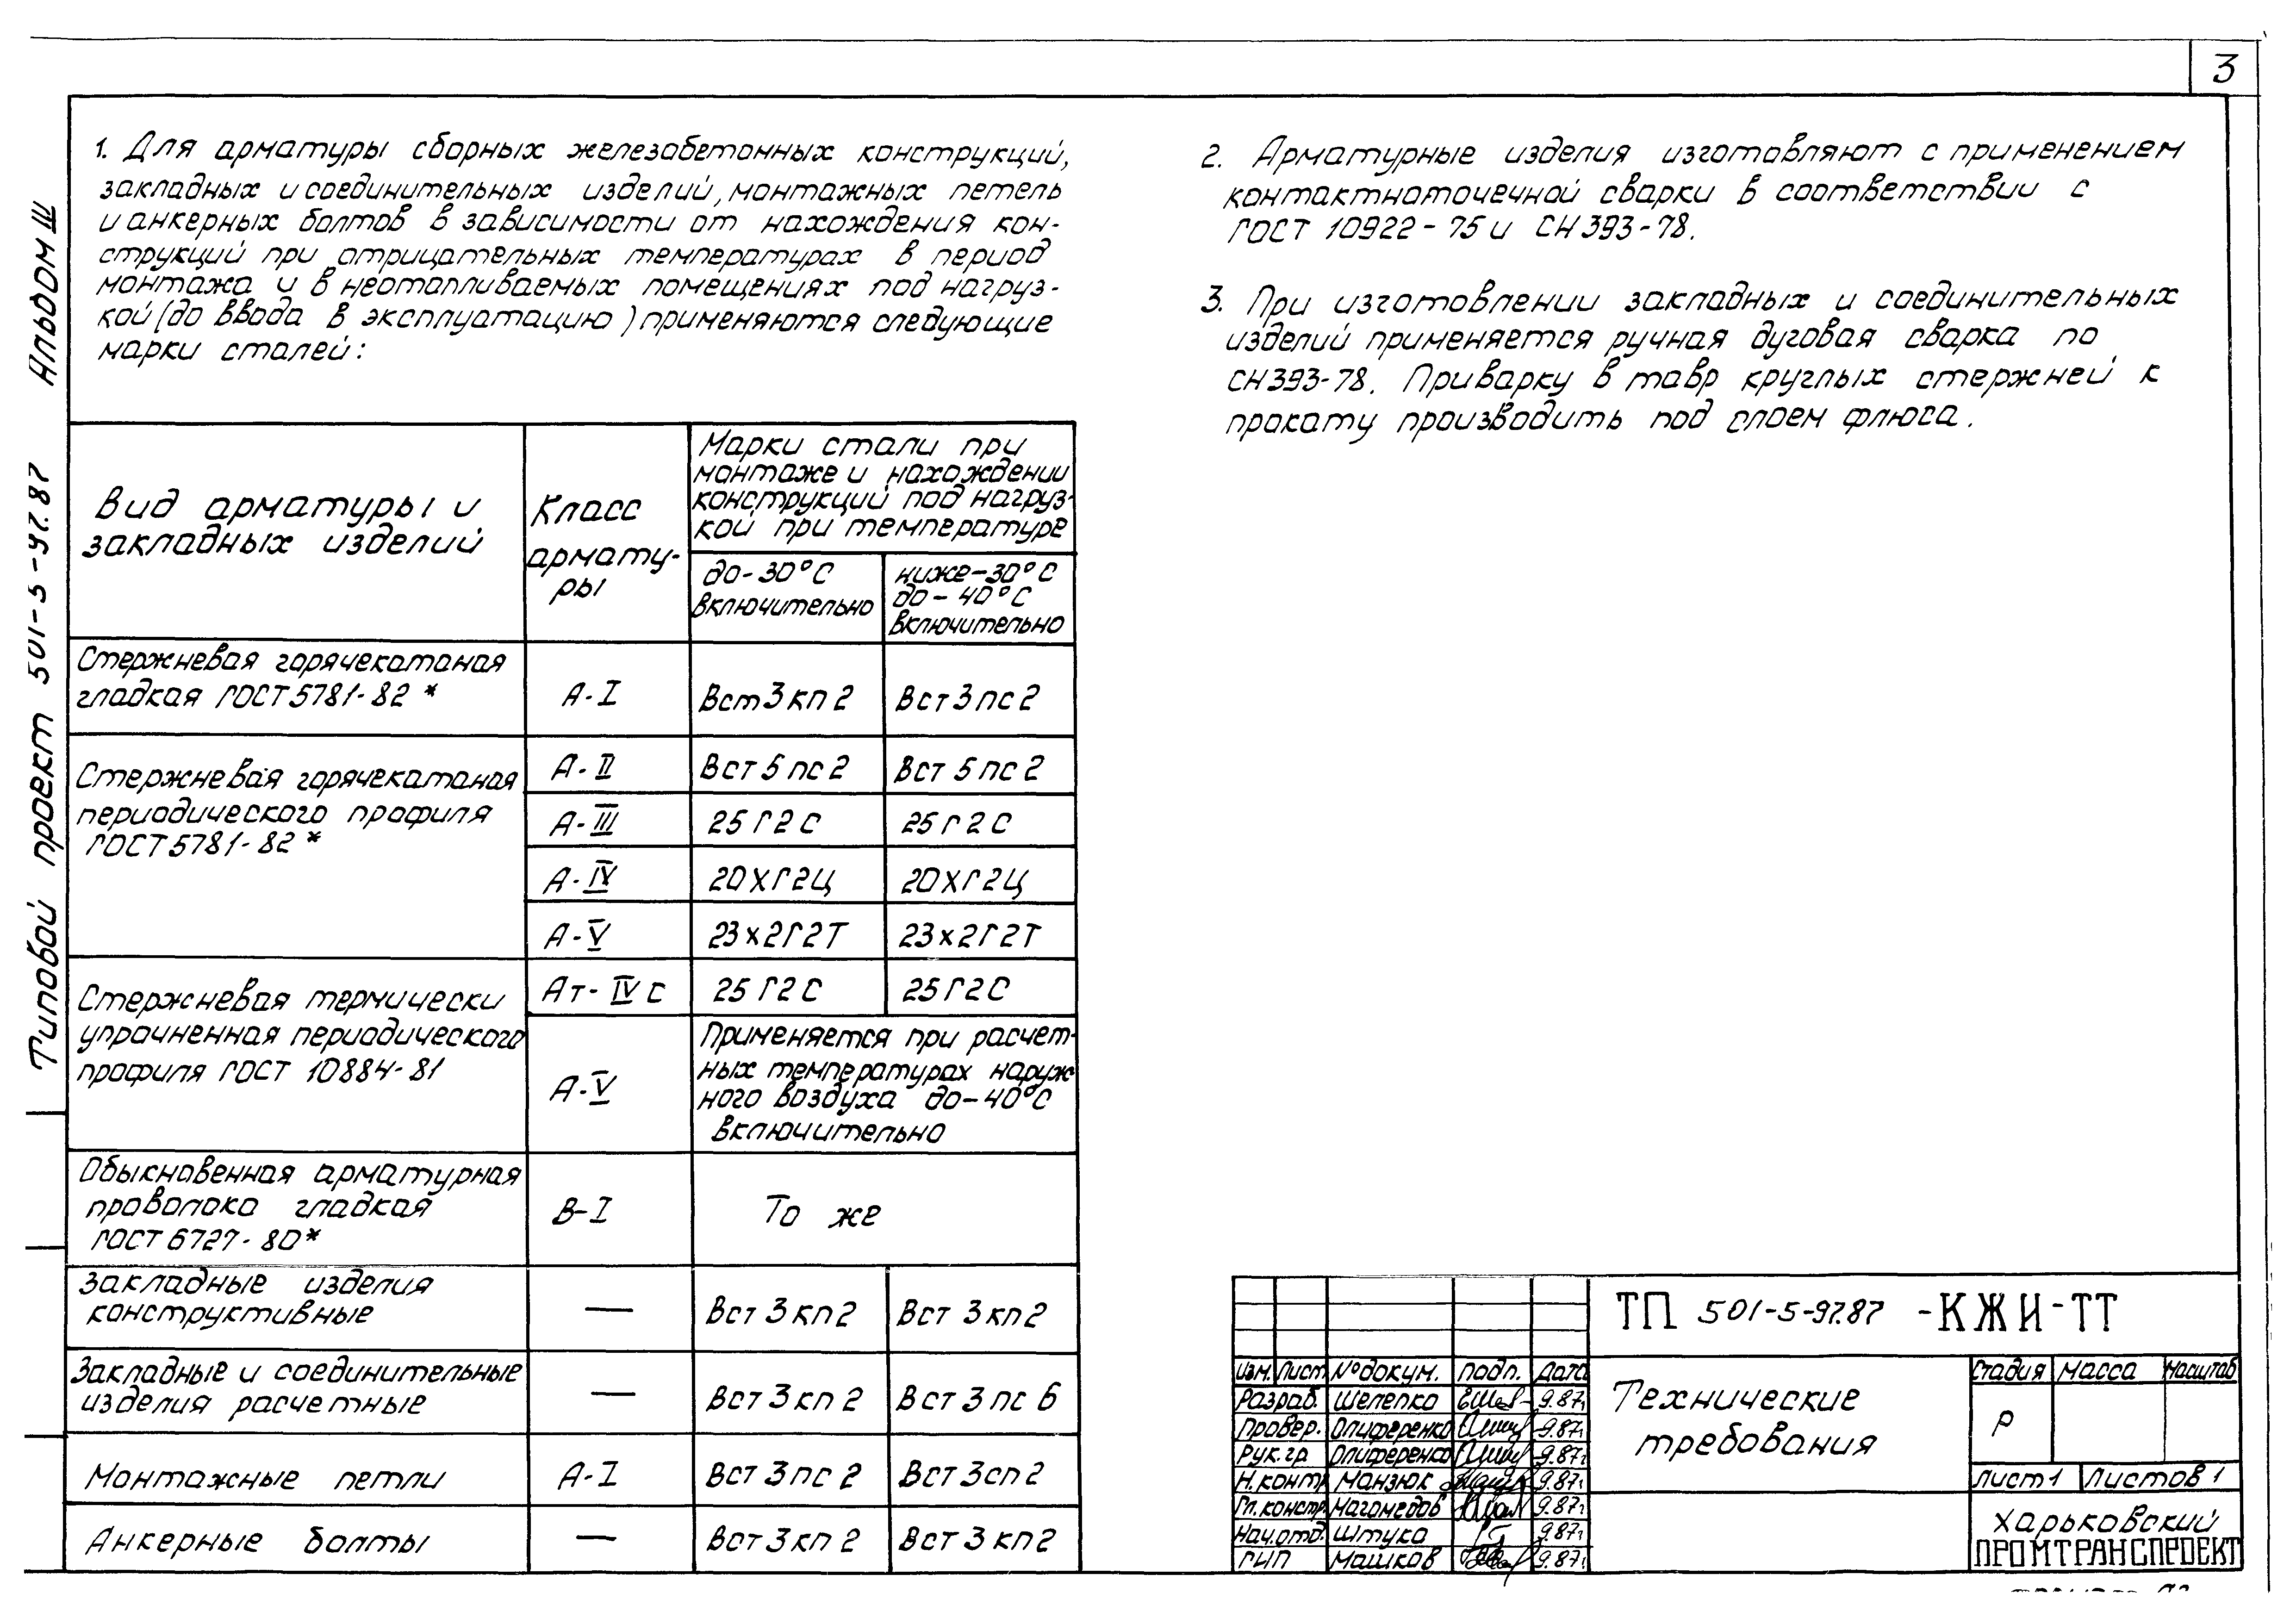 3
Альбом III
Типовой проект 501-5-97.87
1. Для арматуры сборных железобетонных конструкций,
закладных и соединительных изделий, монтажных петель
и анкерных болтов в зависимости от нахождения кон-
струкций при отрицательных температурах в период
монтажа и в неотапливаемых помещениях под нагруз-
кой (до ввода в эксплуатацию) применяются следующие
марки сталей:
Вид арматуры и
закладных изделий
Класс
армату-
ры
Марки стали при
монтаже и нахождении
конструкций под нагруз-
кой при температуре
до-30°С
включительно
ниже-30°С
до-40°С
включительно
Стержневая горячекатаная
гладкая ГОСТ 5781-82*
А-I
Вст3кп2
Вст3пс2
Стержневая горячекатаная
периодического профиля
ГОСТ 5781-82*
А-II
Вст5пс2
Вст5пс2
А-III
25Г2С
25Г2С
А-IV
20ХГ2Ц
20ХГ2Ц
А-V
23х2Г2Т
23х2Г2Т
Стержневая термически
упрочненная периодического
профиля ГОСТ 10884-81
Ат-IVС
25Г2С
25Г2С
А-V
Применяется при расчет-
ных температурах наруж
ного воздуха до-40°С
включительно
Обыкновенная арматурная
проволока гладкая
ГОСТ 6727-80*
В-I
То же
Закладные изделия
конструктивные
—
Вст3кп2
Вст3кп2
Закладные и соединительные
изделия расчетные
—
Вст3кп2
Вст3пс6
Монтажные петли
А-I
Вст3пс2
Вст3сп2
Анкерные болты
—
Вст3кп2
Вст3кп2
2. Арматурные изделия изготовляют с применением
контактноточечной сварки в соответствии с
ГОСТ 10922-75 и СН 393-78.
3. При изготовлении закладных и соединительных
изделий применяется ручная дуговая сварка по
СН393-78. Приварку в тавр круглых стержней к
прокату производить под слоем флюса.
ТП 501-5-97.87 -КЖИ-ТТ
Изм. Лист №докум. подп. Дата
Разраб. Шелепко 9.87г
Провер. Олиференко 9.87г
Рук.гр Олиференко 9.87г
Н.контр Манзюк 9.87г
Гл.констр. Магомедов 9.87г
Нач.отд. Штука 9.87г
ГИП Машков 9.87г
Технические
требования
Стадия Масса Масштаб
Р
Лист 1 Листов 1
Харьковский
ПРОМТРАНСПРОЕКТ